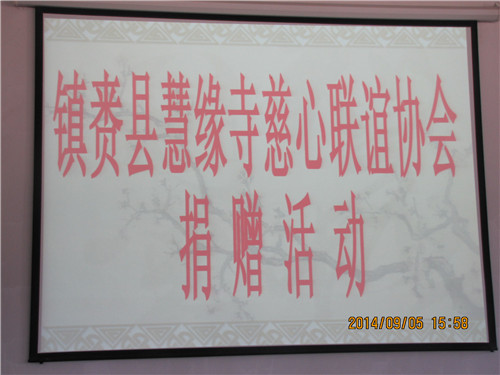 镇赉县慧缘寺慈心联谊协会
捐赠活动
2014/09/05 15:58